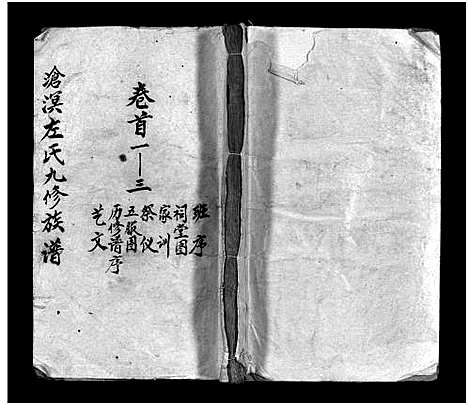 班序
祠堂图
家训
祭仪
五服图
历修谱序
艺文
卷首一—三
沧溟左氏九修族谱